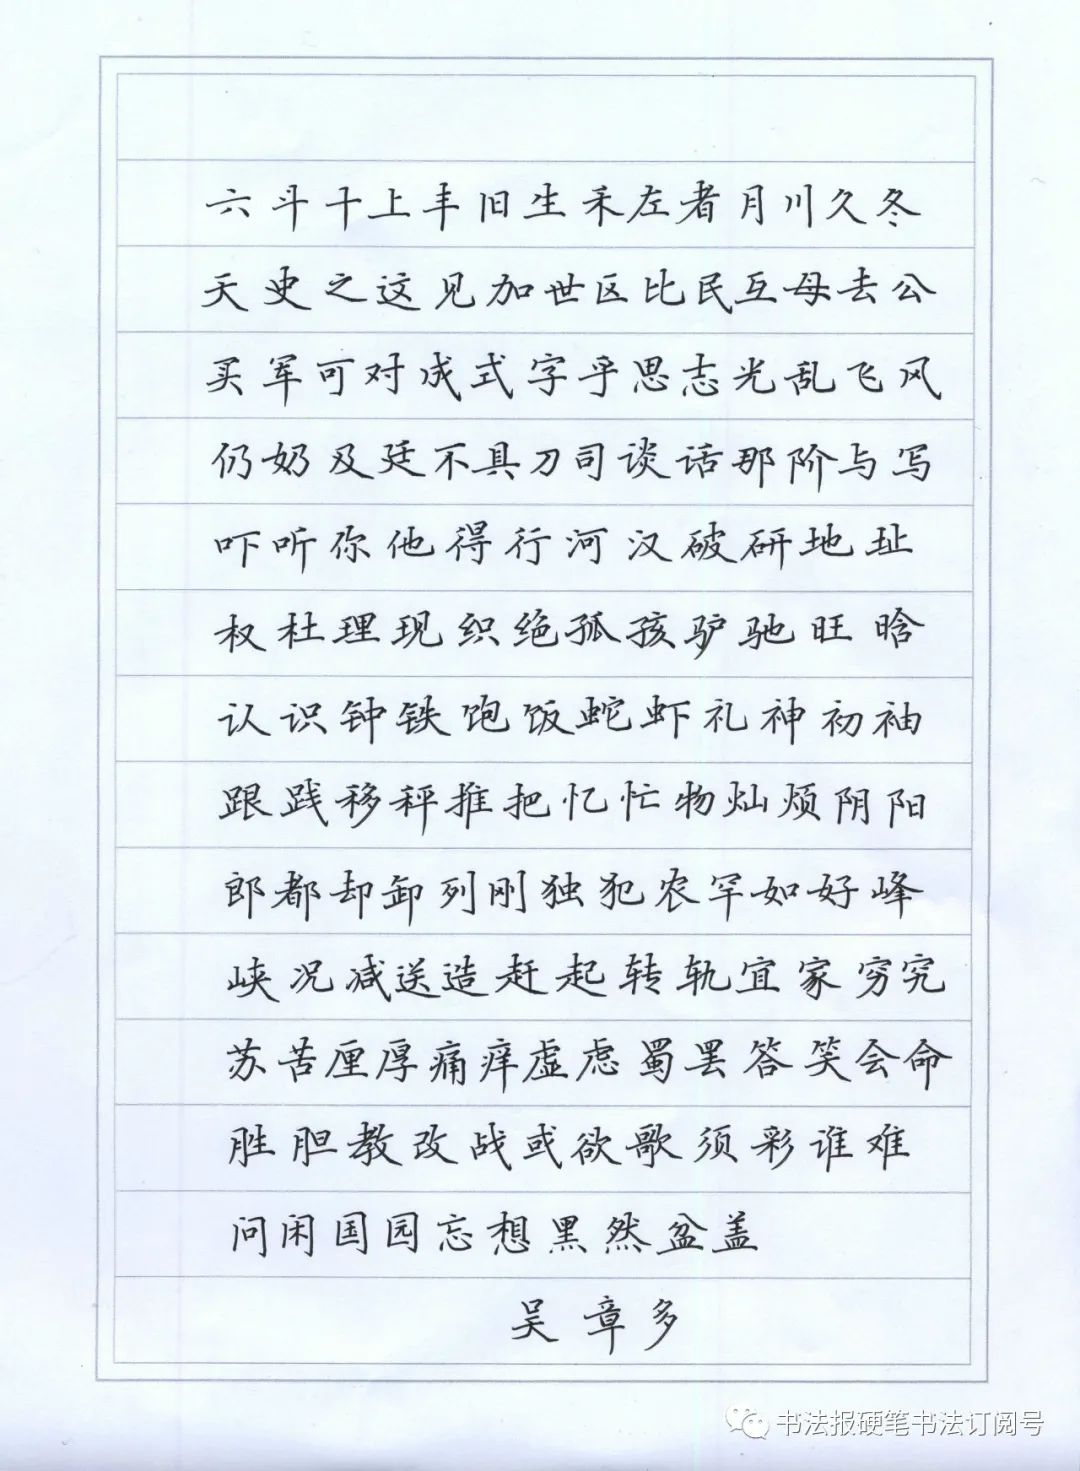 六斗十上丰旧生禾左者月川久冬
天史之这见加世区比民互母去公
买军可对成式字乎思志光乱飞风
仍奶及廷不具刀司谈话那阶与写
吓听你他得行河汉破研地址
权杜理现织绝孤孩驴驰旺晗
认识钟铁饱饭蛇虾礼神初袖
跟践移秤推把忆忙物灿烦阴阳
郎都却卸列刚独犯农罕如好峰
峡况减送造赶起转轨宜家穷究
苏苦厘厚痛痒虚虑蜀罢答笑会命
胜胆教改战或欲歌须彩谁难
问闲国园忘想黑然盆盖
吴章多
书法报硬笔书法订阅号